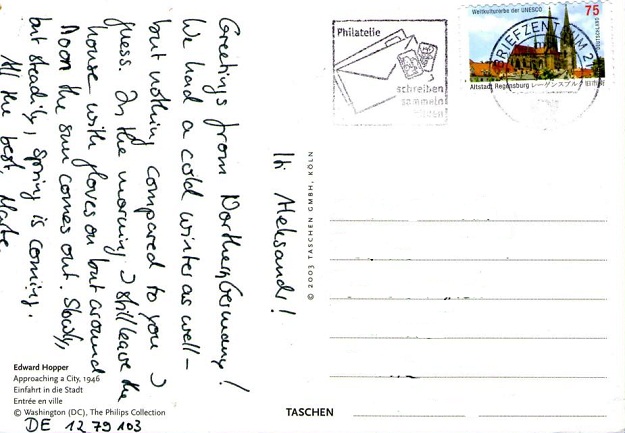 Hi Aleksandr!
Greetings from Northern Germany!
We had a cold winter as well –
but nothing compared to you I
guess. In the morning I still leave the
house with gloves on but around
Noon the sun comes out. Slowly,
but steadily, spring is coming.
All the best, Marte.
Edward Hopper
Approaching a City, 1946
Einfahrt in die Stadt
Entrée en ville
© Washington (DC), The Philips Collection
DE 1279103
© 2003 TASCHEN GMBH, KÖLN
TASCHEN
Philatelie
schreiben
sammeln
Weltkulturerbe der UNESCO
75
DEUTSCHLAND
BRIEFZENTRUM 2
Altstadt Regensburg レーゲンスブルク旧市街